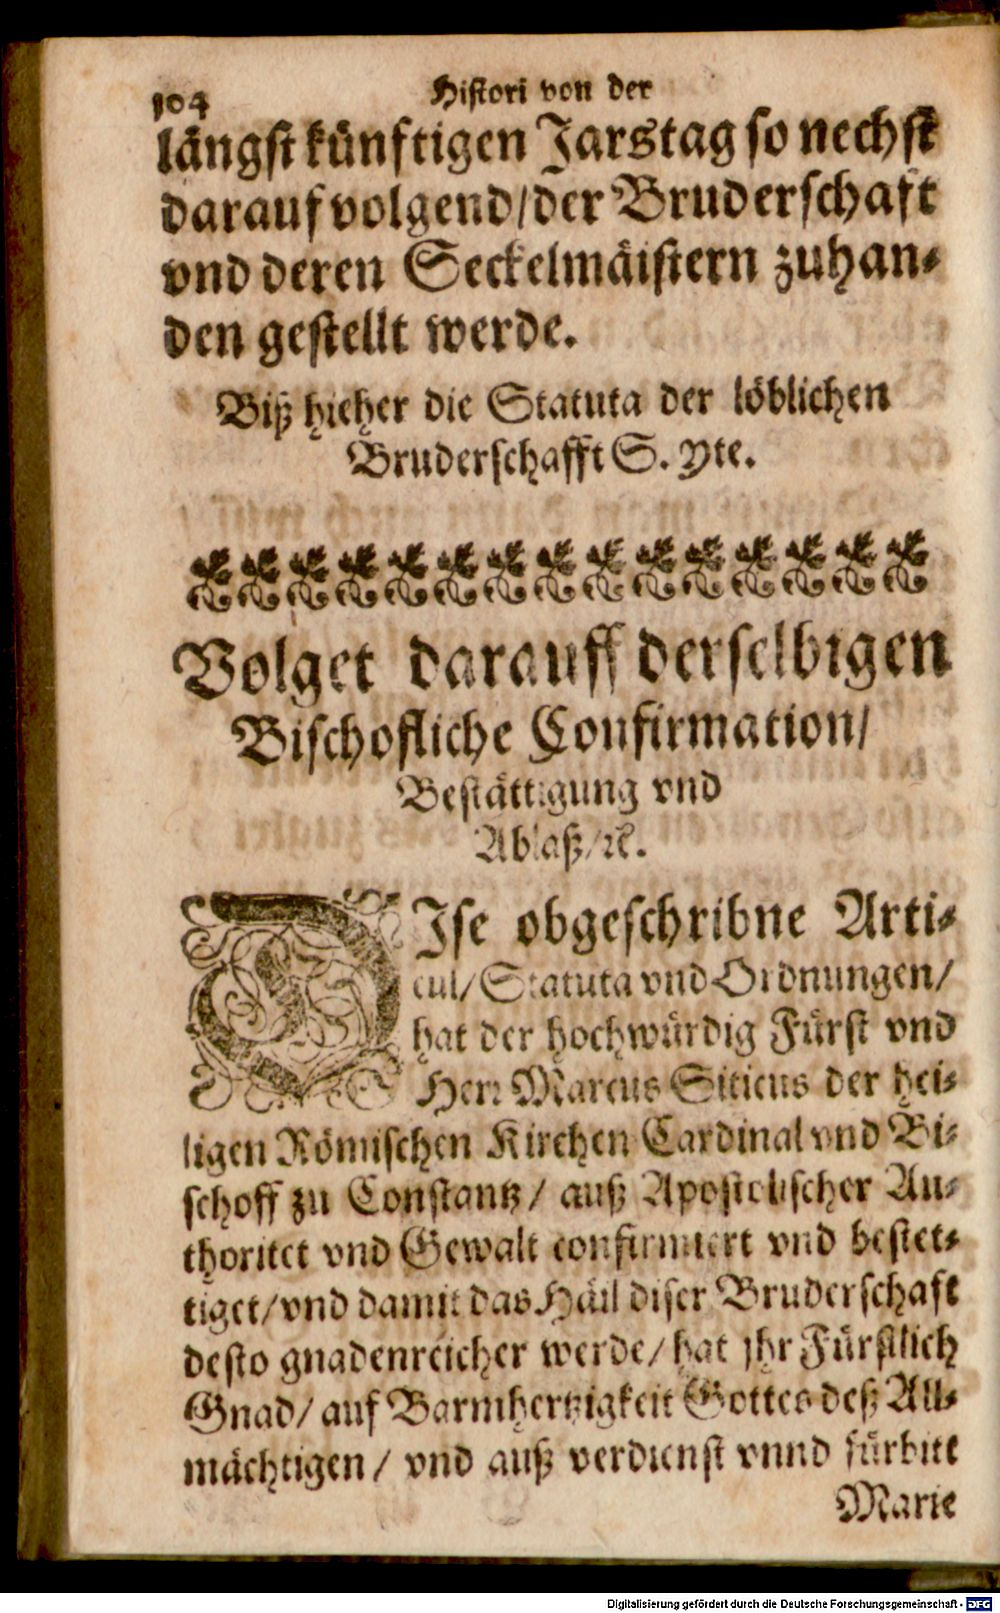 104
Histori von der
längst künftigen Jarstag so nechst
darauf volgend/der Bruderschaft
vnd deren Seckelmäistern zuhan-
den gestellt werde.
Biß hieher die Statuta der löblichen
Bruderschafft S. Yte.
Volget darauff derselbigen
Bischofliche Confirmation/
Bestättigung vnd
Ablaß/ꝛc.
DIse obgeschribne Arti-
cul/Statuta vnd Ordnungen/
hat der hochwürdig Fürst vnd
Herr Marcus Siticus der hei-
ligen Römischen Kirchen Cardinal vnd Bi-
schoff zu Constantz/ auß Apostolischer Au-
thoritet vnd Gewalt confirmiert vnd bestet-
tiget/vnd damit das Häil diser Bruderschaft
desto gnadenreicher werde/hat jhr Fürstlich
Gnad/auf Barmhertzigkeit Gottes deß All-
mächtigen/ vnd auß verdienst vnnd fürbitt
Marie
Digitalisierung gefördert durch die Deutsche Forschungsgemeinschaft - DFG